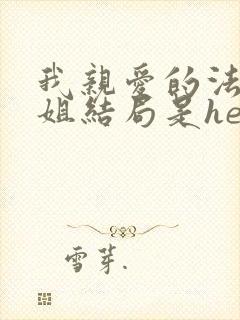 我親愛的法
姐結局是he
雪芽.